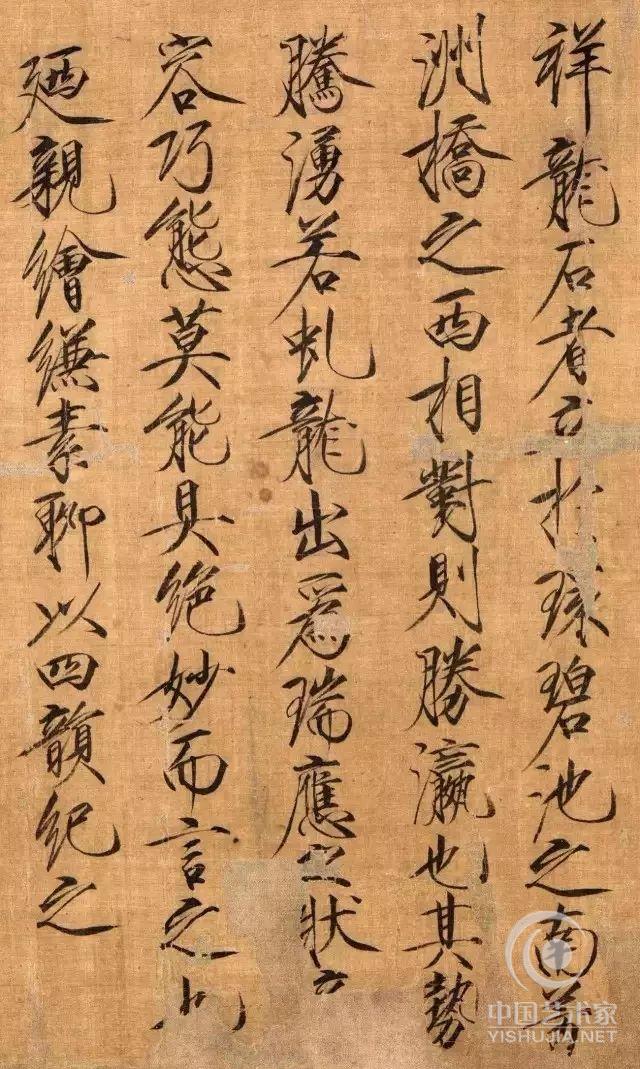 祥龍石者立於環碧池之南芳
洲橋之西相對則勝瀛也其勢
騰湧若虬龍出爲瑞應之狀奇
容巧態莫能具絶妙而言之也
廼親繪縑素聊以四韻紀之
中国艺术家
YISHUJIA.NET